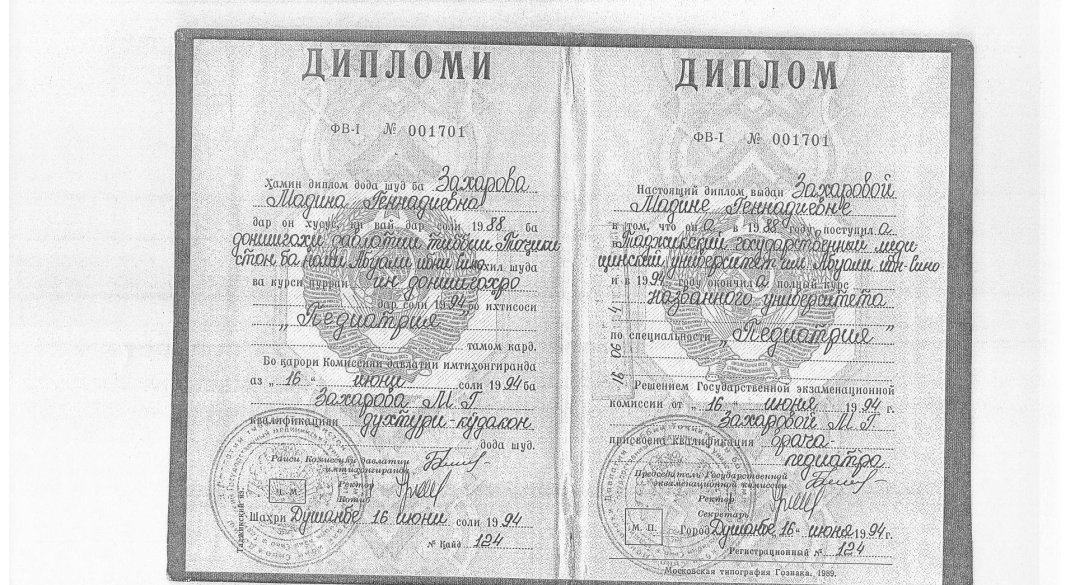 ДИПЛОМИ
ФВ-I № 001701
Ҳамин диплом дода шуд ба Захарова
Мадина Геннадиевна
дар он хусус, ки вай дар соли 1988 ба
донишгохи давлатии тиббии Точики
стон ба номи Абуали ибни Сино дохил шуда
ва курси пурраи ин донишгохро
дар соли 1994 бо ихтисоси
„Педиатрия"
тамом кард.
Бо қарори Комиссияи давлатии имтиҳонгиранда
аз „16" июни соли 1994 ба
Захарова М. Г.
квалификацияи духтури-кудакон
дода шуд.
Раиси Комиссияи давлатии
имтиҳонгиранда
Ректор
Котиб
Ҷ. М.
Шаҳри Душанбе 16 июни соли 1994
№ Қайд 124
ДИПЛОМ
ФВ-I № 001701
Настоящий диплом выдан Захаровой
Мадине Геннадиевне
в том, что она в 1988 году поступила
в Таджикский государственный меди
цинский университет им. Абуали ибн-Сино
и в 1994 году окончила полный курс
названного университета
по специальности „Педиатрия"
Решением Государственной экзаменационной
комиссии от „16" июня 1994 г.
Захаровой М. Г.
присвоена квалификация врача-
педиатра
Председатель Государственной
экзаменационной комиссии
Ректор
Секретарь
М. П.
Город Душанбе „16" июня 1994 г.
Регистрационный № 124
Московская типография Гознака. 1989.